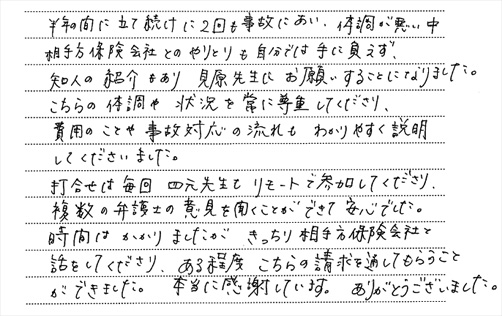 半年の間に立て続けに2回も事故にあい、体調が悪い中
相手方保険会社とのやりとりも自分では手に負えず、
知人の紹介もあり 見原先生に お願いすることになりました。
こちらの体調や 状況を常に尊重してくださり、
費用のことや事故対応の流れも わかりやすく説明
してくださいました。
打合せは毎回 四元先生も リモートで参加してくださり、
複数の弁護士の意見を聞くことができて 安心でした。
時間はかかりましたが きっちり相手方保険会社と
話をしてくださり、ある程度 こちらの請求を通してもらうこと
ができました。 本当に感謝しています。 ありがとうございました。